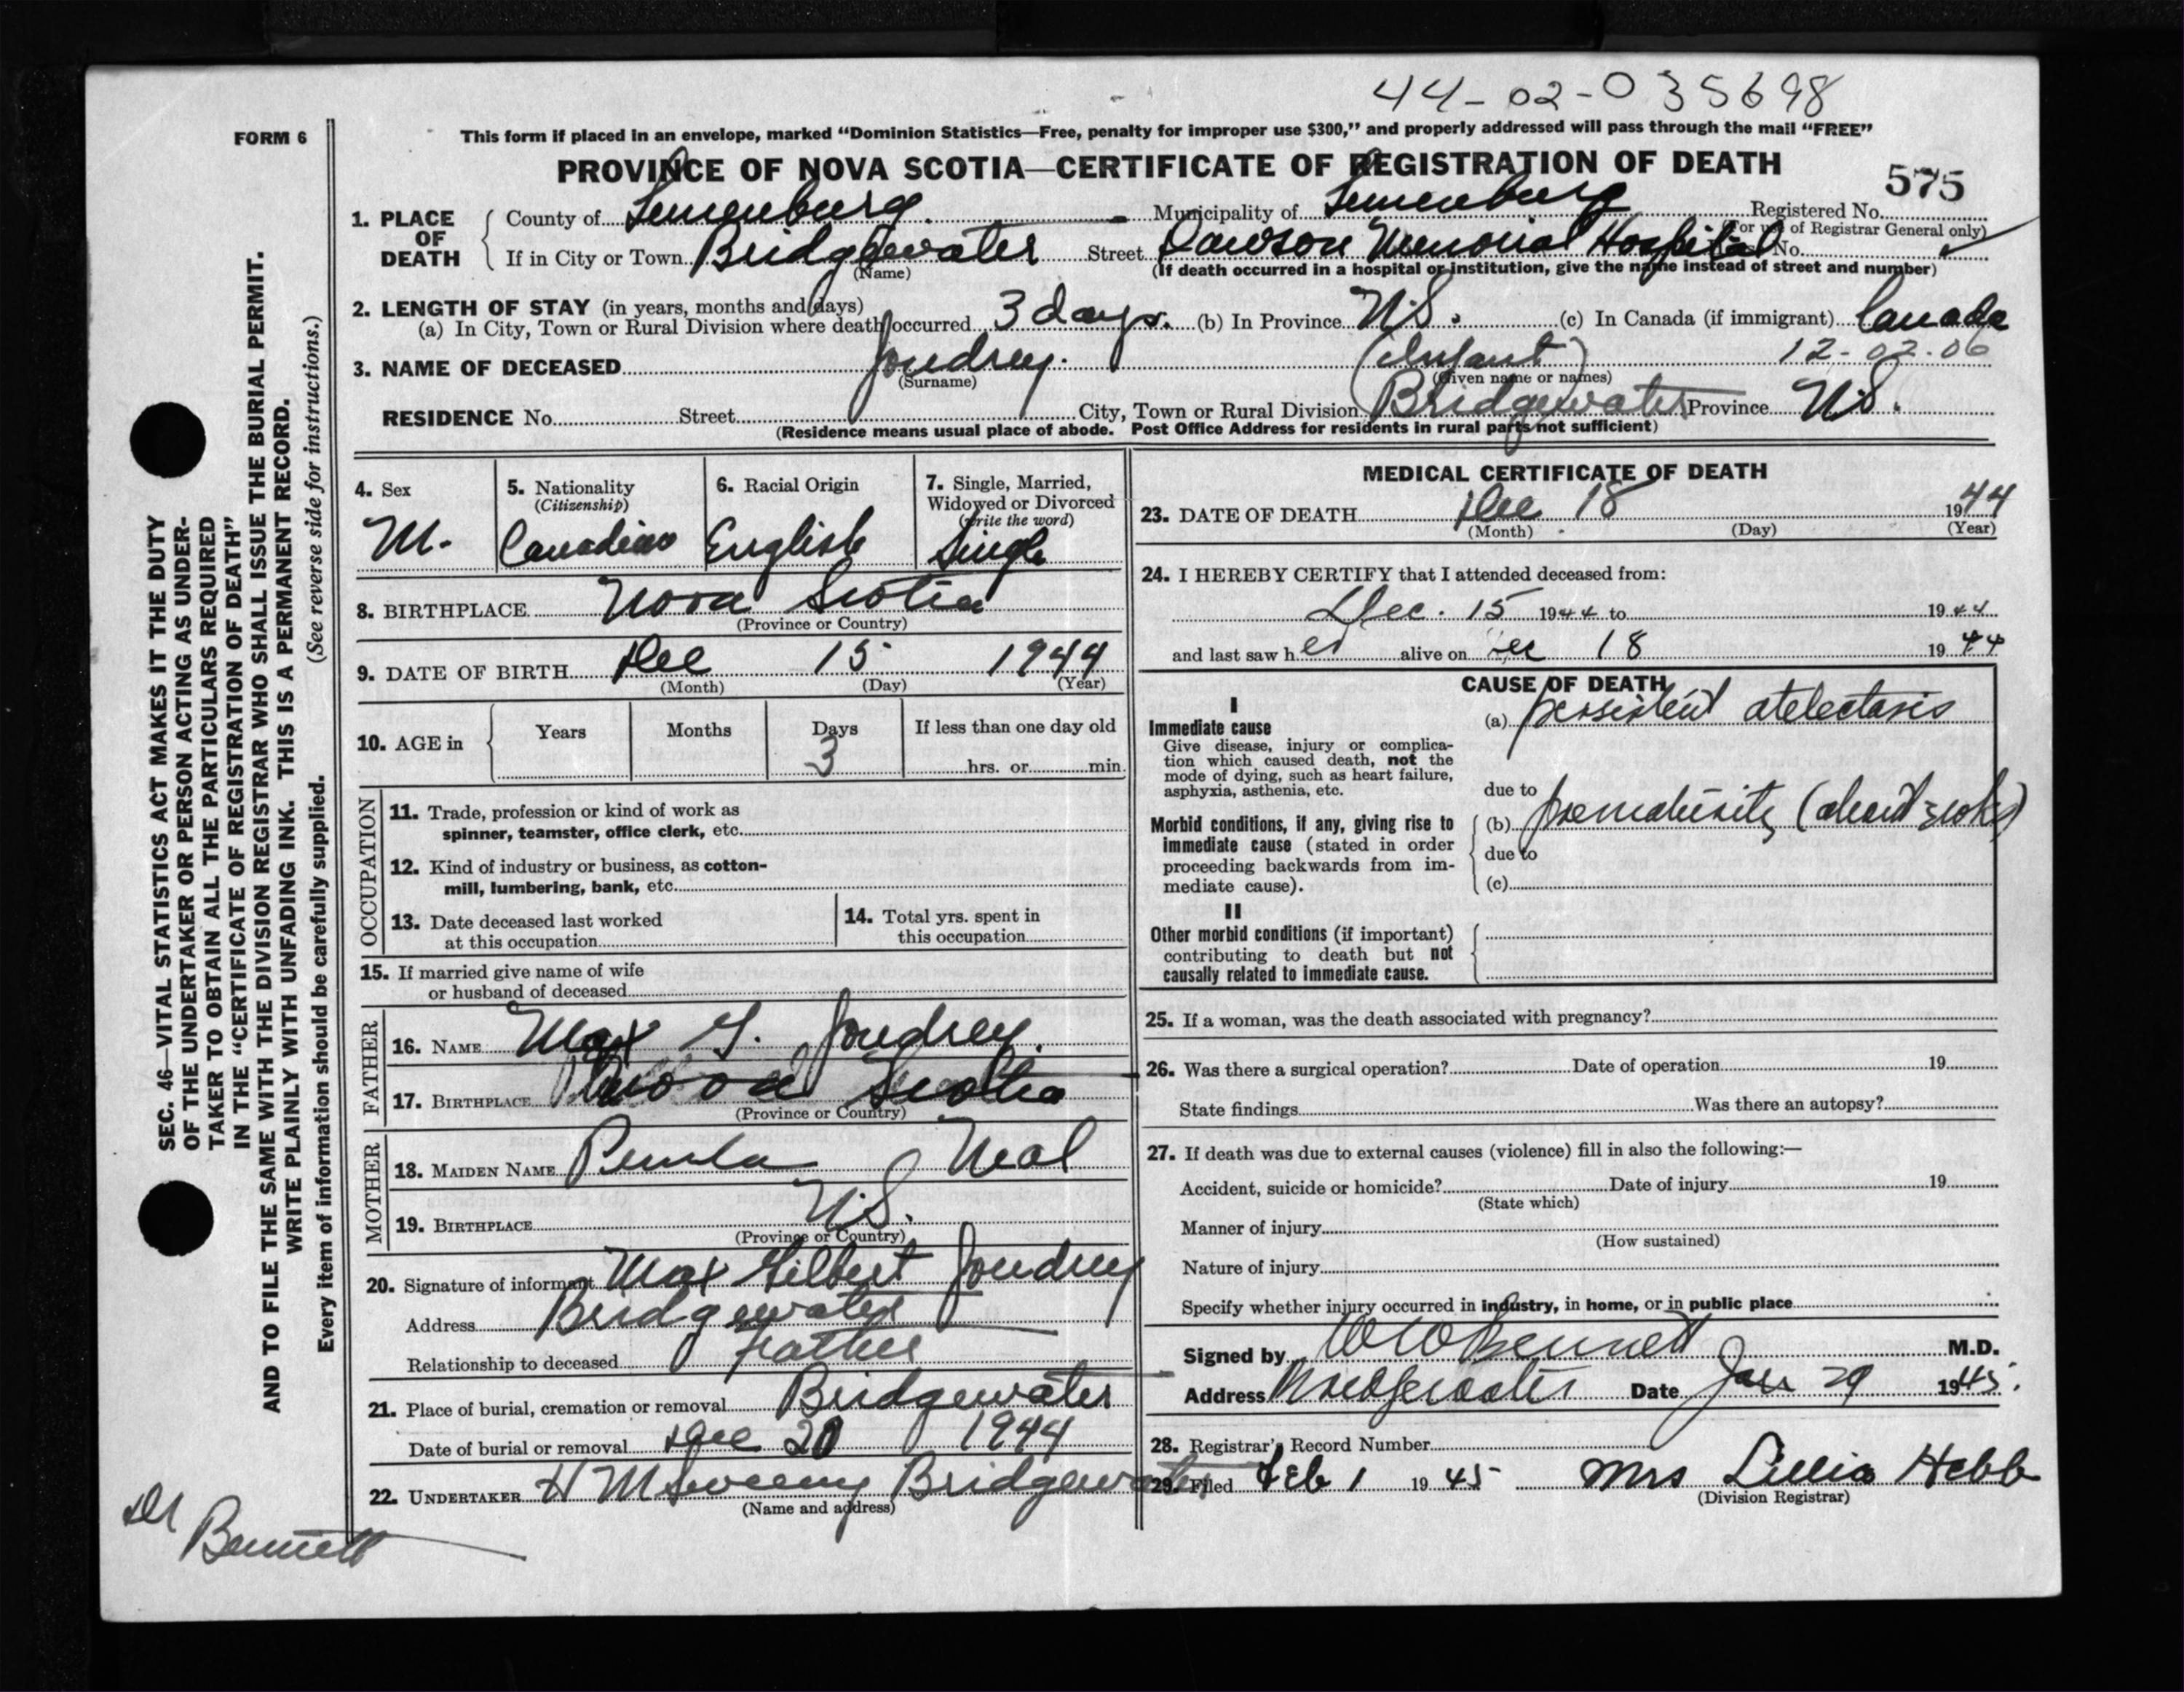 44-02-035698
FORM 6
This form if placed in an envelope, marked “Dominion Statistics—Free, penalty for improper use $300,” and properly addressed will pass through the mail “FREE”
PROVINCE OF NOVA SCOTIA—CERTIFICATE OF REGISTRATION OF DEATH
575
1. PLACE OF DEATH
County of Lunenburg. Municipality of Lunenburg Registered No.
(For use of Registrar General only)
If in City or Town Bridgewater Street Dawson Memorial Hospital No.
(Name) (If death occurred in a hospital or institution, give the name instead of street and number)
2. LENGTH OF STAY (in years, months and days)
(a) In City, Town or Rural Division where death occurred 3 days. (b) In Province N.S. (c) In Canada (if immigrant) Canada
3. NAME OF DECEASED Joudrey. (Infant) 12-02-06
(Surname) (Given name or names)
RESIDENCE No. Street City, Town or Rural Division Bridgewater Province N.S.
(Residence means usual place of abode. Post Office Address for residents in rural parts not sufficient)
4. Sex
M.
5. Nationality
(Citizenship)
Canadian
6. Racial Origin
English
7. Single, Married,
Widowed or Divorced
(write the word)
Single
8. BIRTHPLACE Nova Scotia
(Province or Country)
9. DATE OF BIRTH Dec 15 1944
(Month) (Day) (Year)
10. AGE in
Years Months Days If less than one day old
3 hrs. or min.
OCCUPATION
11. Trade, profession or kind of work as
spinner, teamster, office clerk, etc.
12. Kind of industry or business, as cotton-
mill, lumbering, bank, etc.
13. Date deceased last worked
at this occupation
14. Total yrs. spent in
this occupation
15. If married give name of wife
or husband of deceased
FATHER
16. NAME Max G. Joudrey.
17. BIRTHPLACE Nova Scotia
(Province or Country)
MOTHER
18. MAIDEN NAME Neal
19. BIRTHPLACE N.S.
(Province or Country)
20. Signature of informant Max Gilbert Joudrey
Address Bridgewater
Relationship to deceased father
21. Place of burial, cremation or removal Bridgewater
Date of burial or removal Dec 20 1944
22. UNDERTAKER H M Sweeny Bridgewater
(Name and address)
MEDICAL CERTIFICATE OF DEATH
23. DATE OF DEATH Dec 18 1944
(Month) (Day) (Year)
24. I HEREBY CERTIFY that I attended deceased from:
Dec. 15 1944 to 1944
and last saw her alive on Dec 18 1944
CAUSE OF DEATH
I
Immediate cause
Give disease, injury or complica-
tion which caused death, not the
mode of dying, such as heart failure,
asphyxia, asthenia, etc.
(a) persistent atelectasis
due to
Morbid conditions, if any, giving rise to
immediate cause (stated in order
proceeding backwards from im-
mediate cause).
(b) prematurity (about
due to
(c)
II
Other morbid conditions (if important)
contributing to death but not
causally related to immediate cause.
25. If a woman, was the death associated with pregnancy?
26. Was there a surgical operation? Date of operation 19
State findings Was there an autopsy?
27. If death was due to external causes (violence) fill in also the following:—
Accident, suicide or homicide? Date of injury 19
(State which)
Manner of injury
(How sustained)
Nature of injury
Specify whether injury occurred in industry, in home, or in public place
Signed by W W Bennett M.D.
Address Bridgewater Date Jan 29 1945.
28. Registrar's Record Number
29. Filed Feb 1 1945 Mrs Lillia Hebb
(Division Registrar)
Dr
Bennett
SEC. 46—VITAL STATISTICS ACT MAKES IT THE DUTY
OF THE UNDERTAKER OR PERSON ACTING AS UNDER-
TAKER TO OBTAIN ALL THE PARTICULARS REQUIRED
IN THE “CERTIFICATE OF REGISTRATION OF DEATH”
AND TO FILE THE SAME WITH THE DIVISION REGISTRAR WHO SHALL ISSUE THE BURIAL PERMIT.
WRITE PLAINLY WITH UNFADING INK. THIS IS A PERMANENT RECORD.
Every item of information should be carefully supplied. (See reverse side for instructions.)